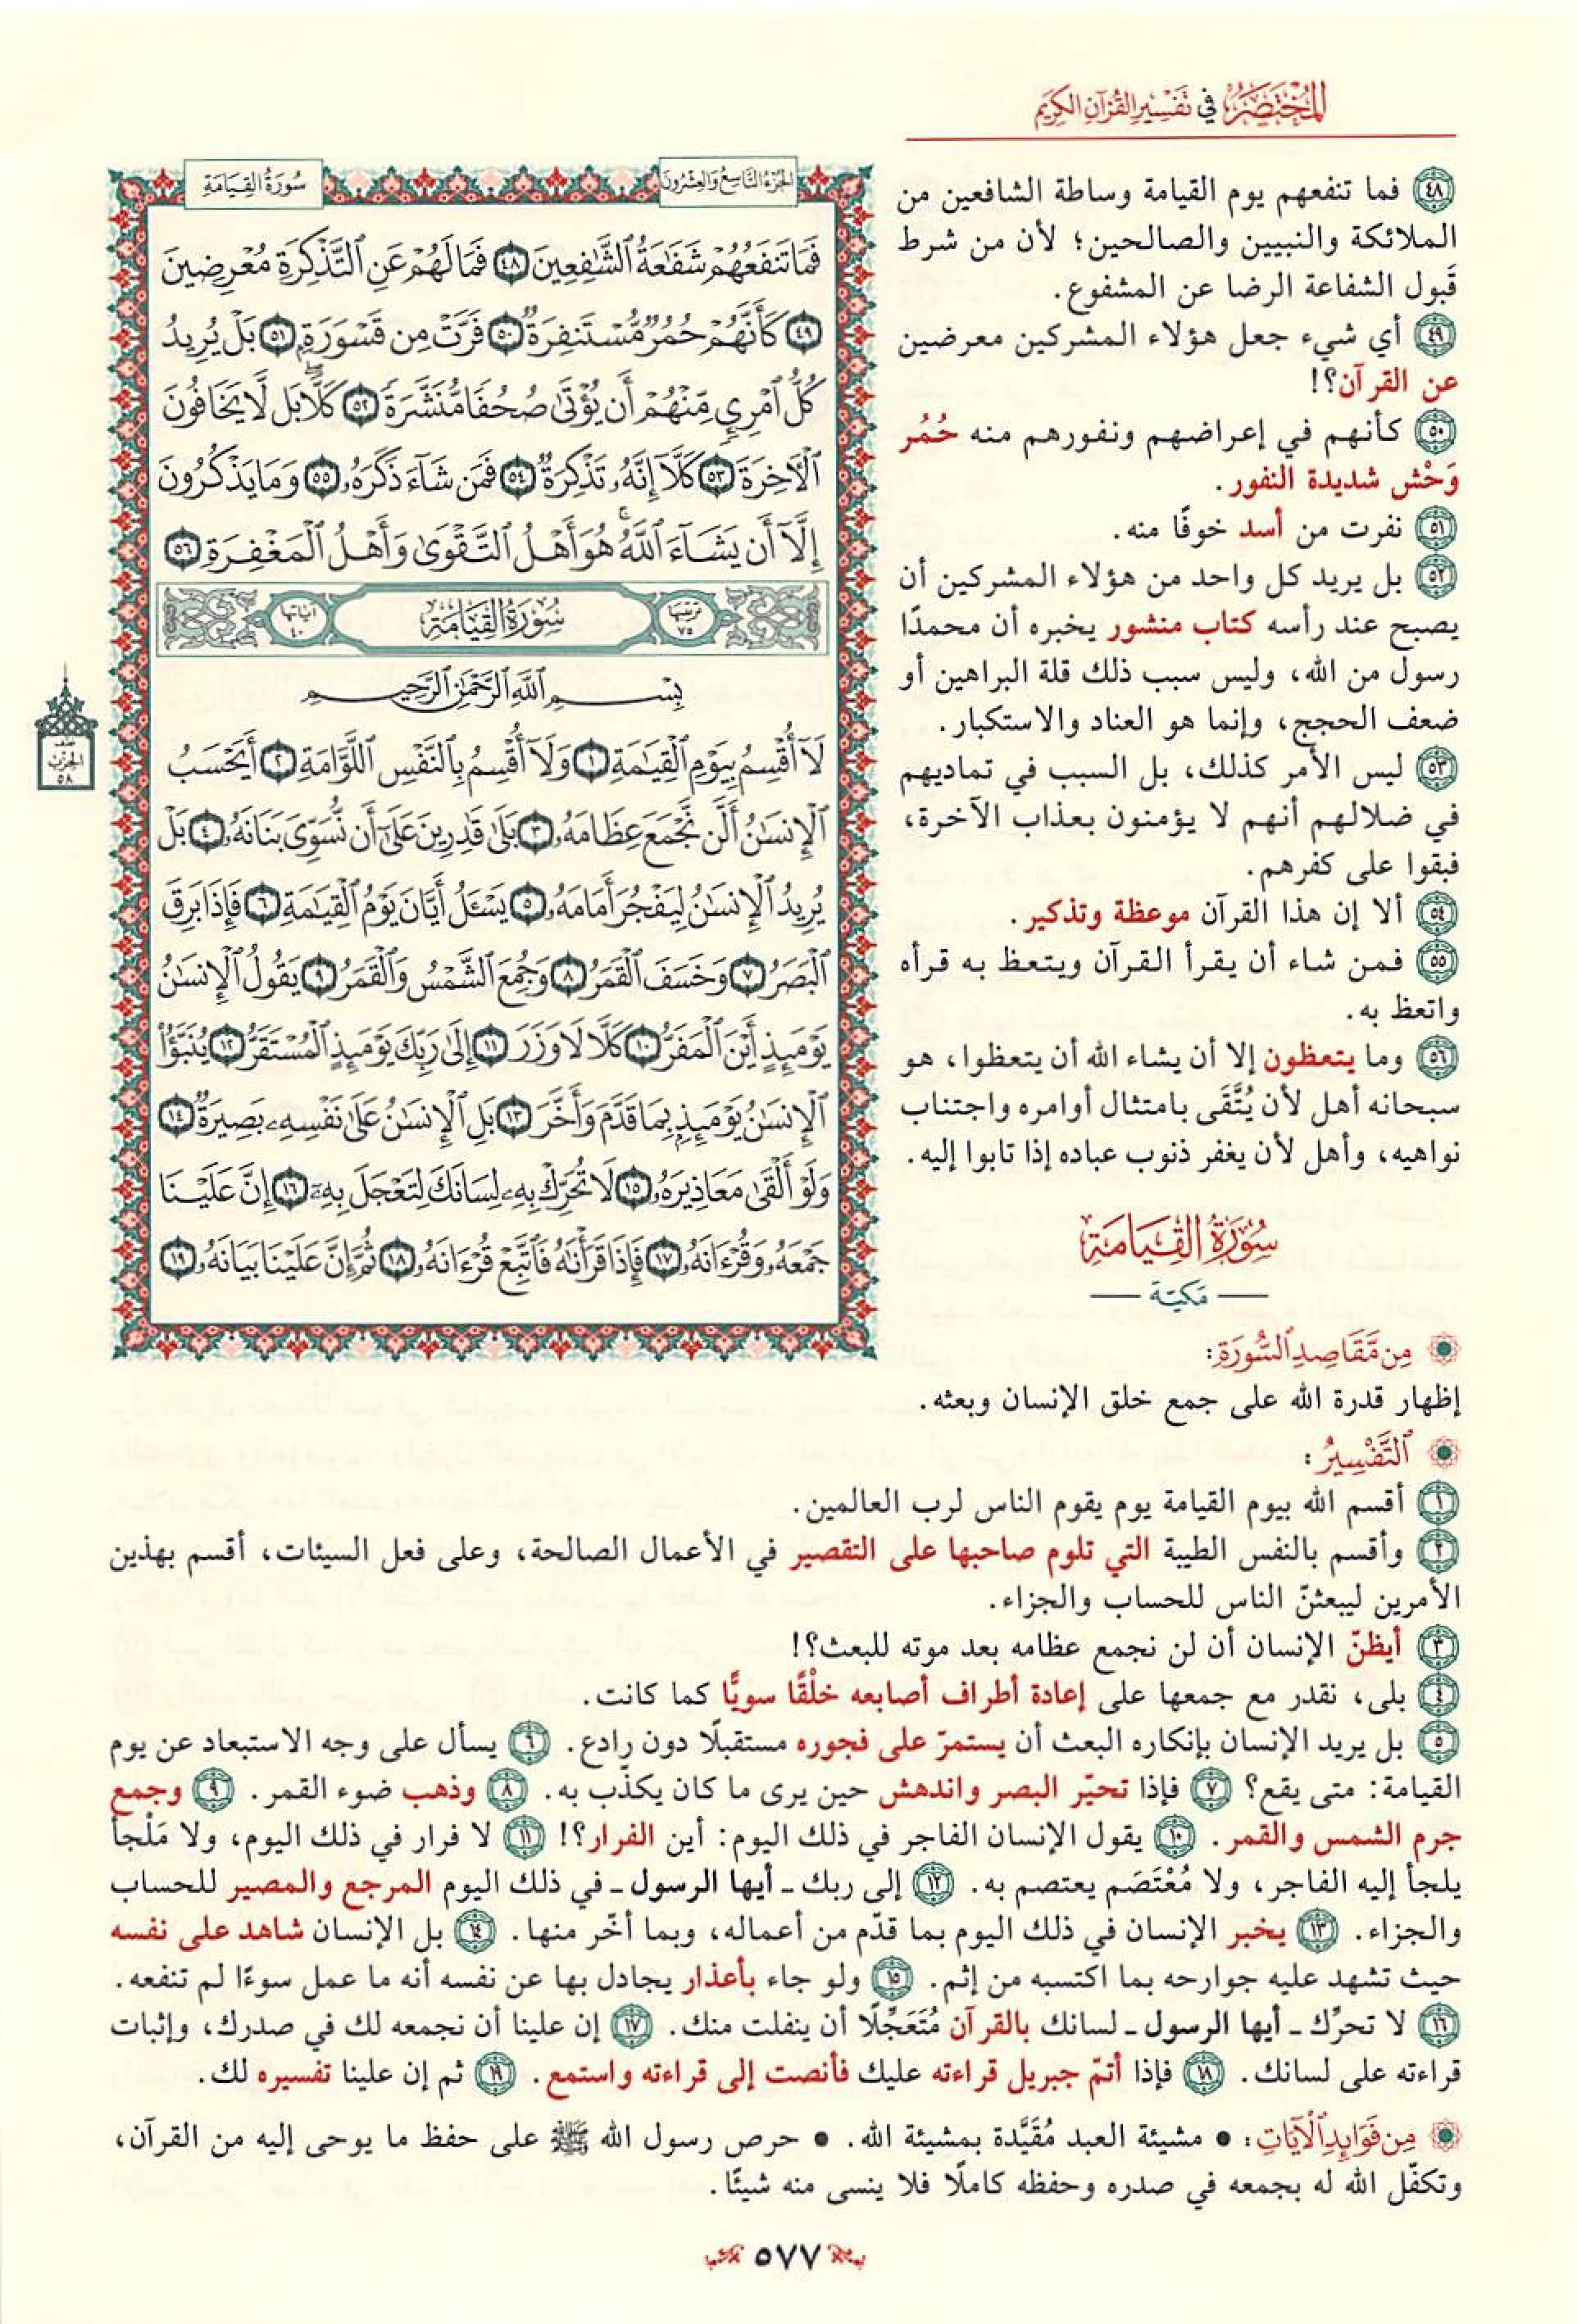 المختصر في تفسير القرآن الكريم
٤٨ فما تنفعهم يوم القيامة وساطة الشافعين من
الملائكة والنبيين والصالحين؛ لأن من شرط
قَبول الشفاعة الرضا عن المشفوع.
٤٩ أي شيء جعل هؤلاء المشركين معرضين
عن القرآن؟!
٥٠ كأنهم في إعراضهم ونفورهم منه حُمُر
وَحْش شديدة النفور.
٥١ نفرت من أسد خوفًا منه.
٥٢ بل يريد كل واحد من هؤلاء المشركين أن
يصبح عند رأسه كتاب منشور يخبره أن محمدًا
رسول من الله، وليس سبب ذلك قلة البراهين أو
ضعف الحجج، وإنما هو العناد والاستكبار.
٥٣ ليس الأمر كذلك، بل السبب في تماديهم
في ضلالهم أنهم لا يؤمنون بعذاب الآخرة،
فبقوا على كفرهم.
٥٤ ألا إن هذا القرآن موعظة وتذكير.
٥٥ فمن شاء أن يقرأ القرآن ويتعظ به قرأه
واتعظ به.
٥٦ وما يتعظون إلا أن يشاء الله أن يتعظوا، هو
سبحانه أهل لأن يُتَّقَى بامتثال أوامره واجتناب
نواهيه، وأهل لأن يغفر ذنوب عباده إذا تابوا إليه.
سُورَةُ القِيَامَة
— مَكيّة —
الجزء التاسع والعشرون
سُورَةُ القِيَامَةِ
فَمَا تَنفَعُهُمْ شَفَٰعَةُ ٱلشَّٰفِعِينَ ٤٨ فَمَا لَهُمْ عَنِ ٱلتَّذْكِرَةِ مُعْرِضِينَ
٤٩ كَأَنَّهُمْ حُمُرٌ مُّسْتَنفِرَةٌ ٥٠ فَرَّتْ مِن قَسْوَرَةٍۭ ٥١ بَلْ يُرِيدُ
كُلُّ ٱمْرِئٍ مِّنْهُمْ أَن يُؤْتَىٰ صُحُفًا مُّنَشَّرَةً ٥٢ كَلَّاۖ بَل لَّا يَخَافُونَ
ٱلْأَخِرَةَ ٥٣ كَلَّآ إِنَّهُۥ تَذْكِرَةٌ ٥٤ فَمَن شَآءَ ذَكَرَهُۥ ٥٥ وَمَا يَذْكُرُونَ
إِلَّآ أَن يَشَآءَ ٱللَّهُۚ هُوَ أَهْلُ ٱلتَّقْوَىٰ وَأَهْلُ ٱلْمَغْفِرَةِ ٥٦
ترتيبها ٧٥ سُورَةُ القِيَامَة آياتها ٤٠
بِسْمِ ٱللَّهِ ٱلرَّحْمَٰنِ ٱلرَّحِيمِ
لَآ أُقْسِمُ بِيَوْمِ ٱلْقِيَٰمَةِ ١ وَلَآ أُقْسِمُ بِٱلنَّفْسِ ٱللَّوَّامَةِ ٢ أَيَحْسَبُ
ٱلْإِنسَٰنُ أَلَّن نَّجْمَعَ عِظَامَهُۥ ٣ بَلَىٰ قَٰدِرِينَ عَلَىٰٓ أَن نُّسَوِّىَ بَنَانَهُۥ ٤ بَلْ
يُرِيدُ ٱلْإِنسَٰنُ لِيَفْجُرَ أَمَامَهُۥ ٥ يَسْـَٔلُ أَيَّانَ يَوْمُ ٱلْقِيَٰمَةِ ٦ فَإِذَا بَرِقَ
ٱلْبَصَرُ ٧ وَخَسَفَ ٱلْقَمَرُ ٨ وَجُمِعَ ٱلشَّمْسُ وَٱلْقَمَرُ ٩ يَقُولُ ٱلْإِنسَٰنُ
يَوْمَئِذٍ أَيْنَ ٱلْمَفَرُّ ١٠ كَلَّا لَا وَزَرَ ١١ إِلَىٰ رَبِّكَ يَوْمَئِذٍ ٱلْمُسْتَقَرُّ ١٢ يُنَبَّؤُا۟
ٱلْإِنسَٰنُ يَوْمَئِذٍۭ بِمَا قَدَّمَ وَأَخَّرَ ١٣ بَلِ ٱلْإِنسَٰنُ عَلَىٰ نَفْسِهِۦ بَصِيرَةٌ ١٤
وَلَوْ أَلْقَىٰ مَعَاذِيرَهُۥ ١٥ لَا تُحَرِّكْ بِهِۦ لِسَانَكَ لِتَعْجَلَ بِهِۦٓ ١٦ إِنَّ عَلَيْنَا
جَمْعَهُۥ وَقُرْءَانَهُۥ ١٧ فَإِذَا قَرَأْنَٰهُ فَٱتَّبِعْ قُرْءَانَهُۥ ١٨ ثُمَّ إِنَّ عَلَيْنَا بَيَانَهُۥ ١٩
نصف
الحزب
٥٨
مِن مَّقَاصِدِ ٱلسُّورَةِ:
إظهار قدرة الله على جمع خلق الإنسان وبعثه.
ٱلتَّفْسِيرُ:
١ أقسم الله بيوم القيامة يوم يقوم الناس لرب العالمين.
٢ وأقسم بالنفس الطيبة التي تلوم صاحبها على التقصير في الأعمال الصالحة، وعلى فعل السيئات، أقسم بهذين
الأمرين ليبعثنّ الناس للحساب والجزاء.
٣ أيظنّ الإنسان أن لن نجمع عظامه بعد موته للبعث؟!
٤ بلى، نقدر مع جمعها على إعادة أطراف أصابعه خلْقًا سويًّا كما كانت.
٥ بل يريد الإنسان بإنكاره البعث أن يستمرّ على فجوره مستقبلًا دون رادع. ٦ يسأل على وجه الاستبعاد عن يوم
القيامة: متى يقع؟ ٧ فإذا تحيّر البصر واندهش حين يرى ما كان يكذّب به. ٨ وذهب ضوء القمر. ٩ وجمع
جرم الشمس والقمر. ١٠ يقول الإنسان الفاجر في ذلك اليوم: أين الفرار؟! ١١ لا فرار في ذلك اليوم، ولا مَلْجأ
يلجأ إليه الفاجر، ولا مُعْتَصَم يعتصم به. ١٢ إلى ربك ـ أيها الرسول ـ في ذلك اليوم المرجع والمصير للحساب
والجزاء. ١٣ يخبر الإنسان في ذلك اليوم بما قدّم من أعماله، وبما أخّر منها. ١٤ بل الإنسان شاهد على نفسه
حيث تشهد عليه جوارحه بما اكتسبه من إثم. ١٥ ولو جاء بأعذار يجادل بها عن نفسه أنه ما عمل سوءًا لم تنفعه.
١٦ لا تحرِّك ـ أيها الرسول ـ لسانك بالقرآن مُتَعَجِّلًا أن ينفلت منك. ١٧ إن علينا أن نجمعه لك في صدرك، وإثبات
قراءته على لسانك. ١٨ فإذا أتمّ جبريل قراءته عليك فأنصت إلى قراءته واستمع. ١٩ ثم إن علينا تفسيره لك.
مِن فَوَائِدِ ٱلْآيَاتِ: • مشيئة العبد مُقَيَّدة بمشيئة الله. • حرص رسول الله ﷺ على حفظ ما يوحى إليه من القرآن،
وتكفّل الله له بجمعه في صدره وحفظه كاملًا فلا ينسى منه شيئًا.
٥٧٧